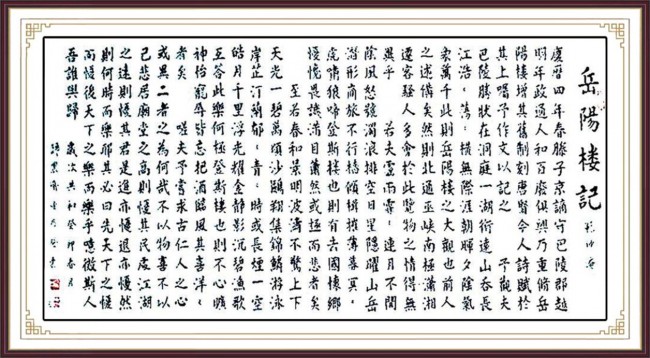 岳陽楼記 范仲淹
慶曆四年春滕子京謫守巴陵郡越
明年政通人和百廢俱興乃重修岳
陽楼增其舊制刻唐賢今人詩賦於
其上囑予作文以記之 予觀夫
巴陵勝狀在洞庭一湖銜遠山吞長
江浩〻蕩〻橫無際涯朝暉夕陰氣
象萬千此則岳陽楼之大觀也前人
之述備矣然則北通巫峽南極瀟湘
遷客騷人多會於此覽物之情得無
異乎 若夫霪雨霏〻連月不開
陰風怒號濁浪排空日星隱曜山岳
潛形商旅不行檣傾楫摧薄暮冥〻
虎嘯猿啼登斯楼也則有去國懷鄉
憂讒畏譏滿目蕭然感極而悲者矣
至若春和景明波瀾不驚上下
天光一碧萬頃沙鷗翔集錦鱗游泳
岸芷汀蘭郁〻青〻時或長煙一空
皓月千里浮光耀金静影沉碧漁歌
互答此樂何極登斯楼也則有心曠
神怡寵辱皆忘把酒臨風其喜洋〻
者矣 嗟夫予嘗求古仁人之心
或異二者之為何哉不以物喜不以
己悲居廟堂之高則憂其民處江湖
之遠則憂其君是進亦憂退亦憂然
則何時而樂耶其必曰先天下之憂
而憂後天下之樂而樂乎噫微斯人
吾誰與歸 歲次共和癸卯春月